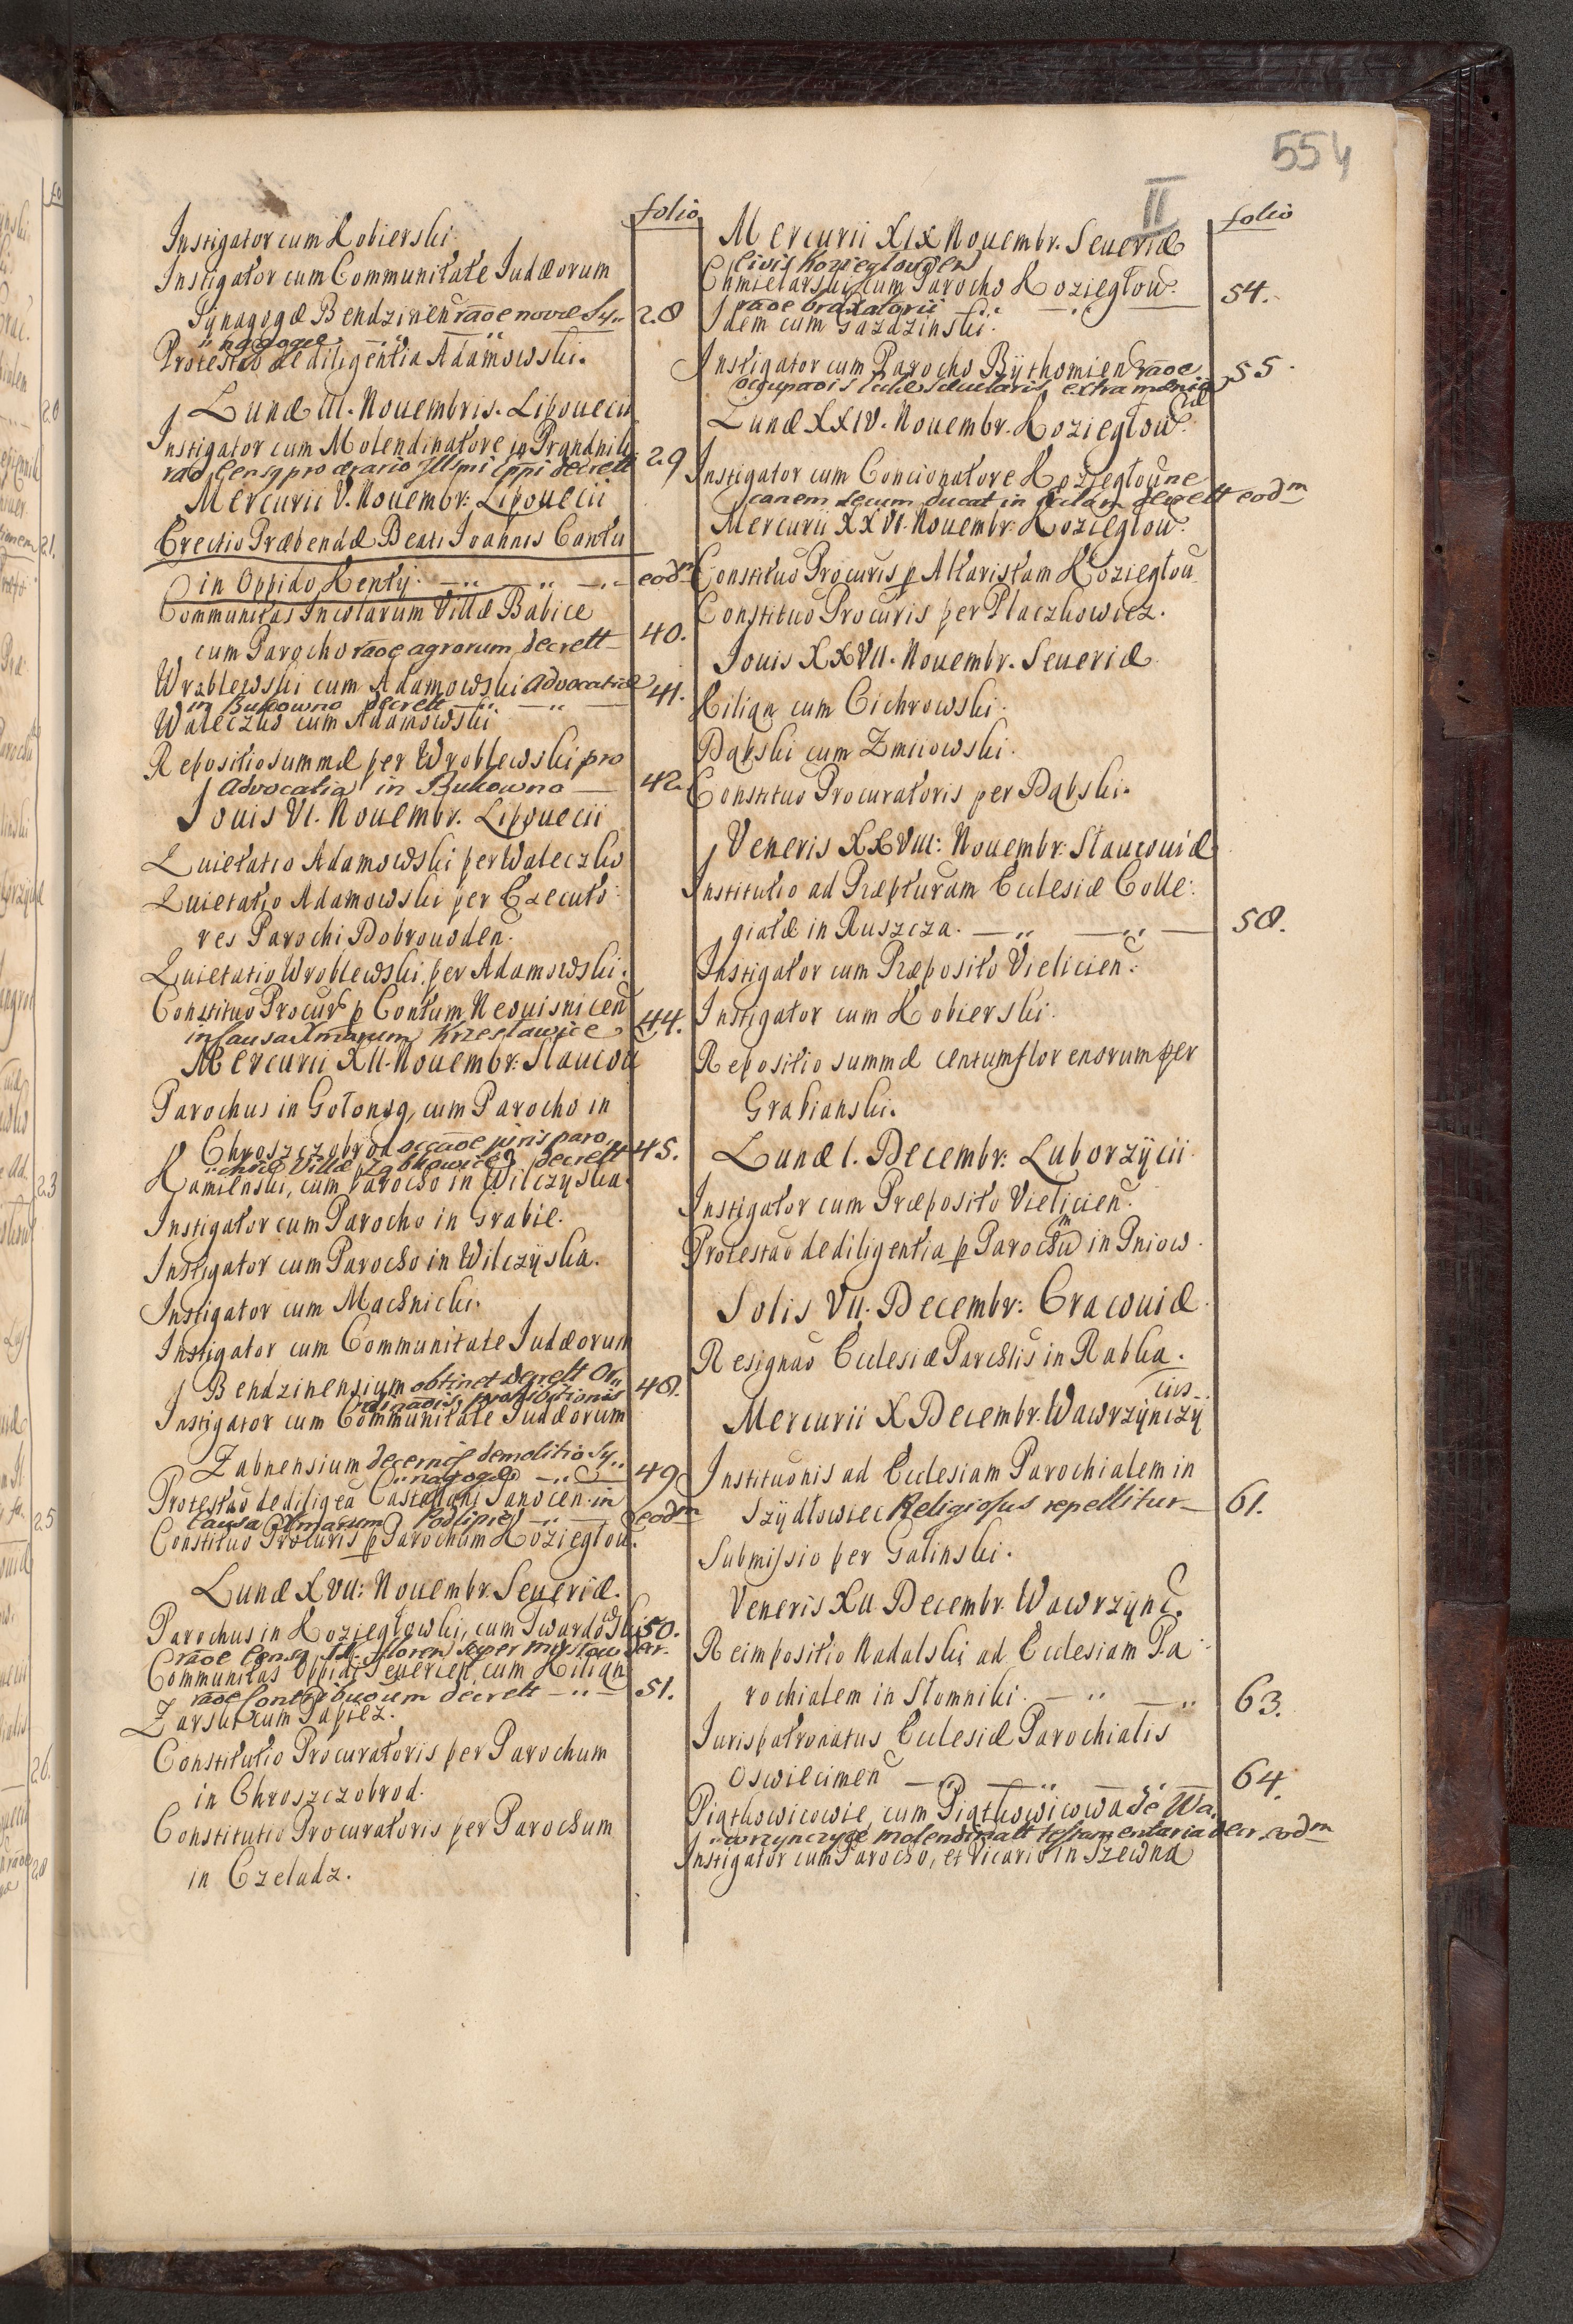 554
II
folio
Instigator cum Kobierski.
Instigator cum Communitate Judæorum
Synagogæ Bendzinen raõe novæ Sy,, 28
,,nagogæ
Protestaõ de diligentia Adamowski.
Lunæ III. Nouembris. Lipouecii
Instigator cum Molendinatore in Prandnik
pro ærario Illmi decrett 29
Mercurii V. Nouembr: Lipouecii
Erectio Præbendæ Beati Joannis Cantii
in Oppido Kenty. eodm
Communitas Incolarum Villæ Babice
cum Parocho raõe agrorum decrett 40.
Wroblewski cum Adamowski Advocatiæ 41.
in Bukowno decrett
Waleczko cum Adamowski
Repositio summæ per Wroblewski pro
Advocatia in Bukowno 42.
Jouis VI. Nouembr. Lipouecii
Quietatio Adamowski per Waleczko
Quietatio Adamowski per Executo:
res Parochi Dobrouoden.
Quietatio Wroblewski per Adamowski.
Constituõ Procur p Contum Neouisnicen
in Causa Xmarum Krzeslawice 44.
Mercurii XII. Nouembr: Slaucou
Parochus in Gołonog, cum Parocho in
Chroszczobrod occaõe juris paro, 45.
,,chiæ Villæ Ząbkowice decrett
Kamienski, cum Parocho in Wilczyska.
Instigator cum Parocho in Grabie.
Instigator cum Parocho in Wilczÿska.
Instigator cum Machnicki.
Instigator cum Communitate Judæorum
Bendzinensium obtinet decrett Or,, 48.
dinaõis, prohibitionis
Instigator cum Communitate Judæorum
Zabnensium decernit demolitio Sy,, 49
,,nagogæ
Protestaõ de diligeã Castellani Sanocen in
Causa Xmarum Podlipie eodm
Constituõ Procuris p Parochum Koziegłou.
Lunæ XVII: Nouembr. Seueriæ.
Parochus in Koziegłowki, cum Twardowski 50.
raõe Census floren super Mystow
Communitas Oppidi Seuerien cum Kilian
raoe Contribuoum decrett 51.
Zarski cum Papiez.
Constitutio Procuratoris per Parochum
in Chroszczobrod.
Constitutio Procuratoris per Parochum
in Czeladz.
folio
Mercurii XIX Nouembr. Seueriæ
Civis Koziegłouien
Chmielarski cum Parocho Koziegłow. 54.
raõe braxatorii
Idem cum Gazdzinski.
Instigator cum Parocho Bÿthomien raoe 55.
ocupaõis extra mænia
Lunæ XXIV. Nouembr. Koziegłow.
Instigator cum Concionatore Koziegłou ne
canem secum ducat in decrett eodm
Mercurii XXVI. Nouembr: Koziegłow.
Constituõ Procuris p Altaristam Koziegłou
Constituõ Procuris per Płaczkowicz.
Jouis XXVII. Nouembr. Seueriæ
Kilian cum Cichrowski.
Dąbski cum Zmiiowski.
Constituõ Procuratoris per Dąbski.
Veneris XXVIII: Nouembr: Slaucouiæ
Institutio ad Præpturam Ecclesiæ Colle:
giatæ in Ruszcza. 58.
Instigator cum Præposito Vielicien.
Instigator cum Kobierski.
Repositio summæ centum florenorum per
Grabianski.
Lunæ I. Decembr: Luborzÿcii.
Instigator cum Præposito Vielicien.
Protestaõ de diligentia p Parochũm in Pniow.
Solis VII. Decembr: Cracouiæ.
Resignaõ Ecclesiæ Parchlis in Rabka.
cii
Mercurii X Decembr. Wawrzÿnczÿ
Instituõnis ad Ecclesiam Parochialem in
Szÿdłowiec Religiosus repellitur 61.
Submissio per Galinski.
Veneris XII. Decembr. Wawrzÿnc.
Reimpositio Nadalski ad Ecclesiam Pa:
rochialem in Słomniki. 63.
Jurispatronatus Ecclesiæ Parochialis
Oswiecimen 64.
Piątkowicowie, cum Piątkowicowa de Wa,
,,wrzynczyce molendinatt testamentaria decr. eodm
Instigator cum Parocho, et Vicario in Szewna